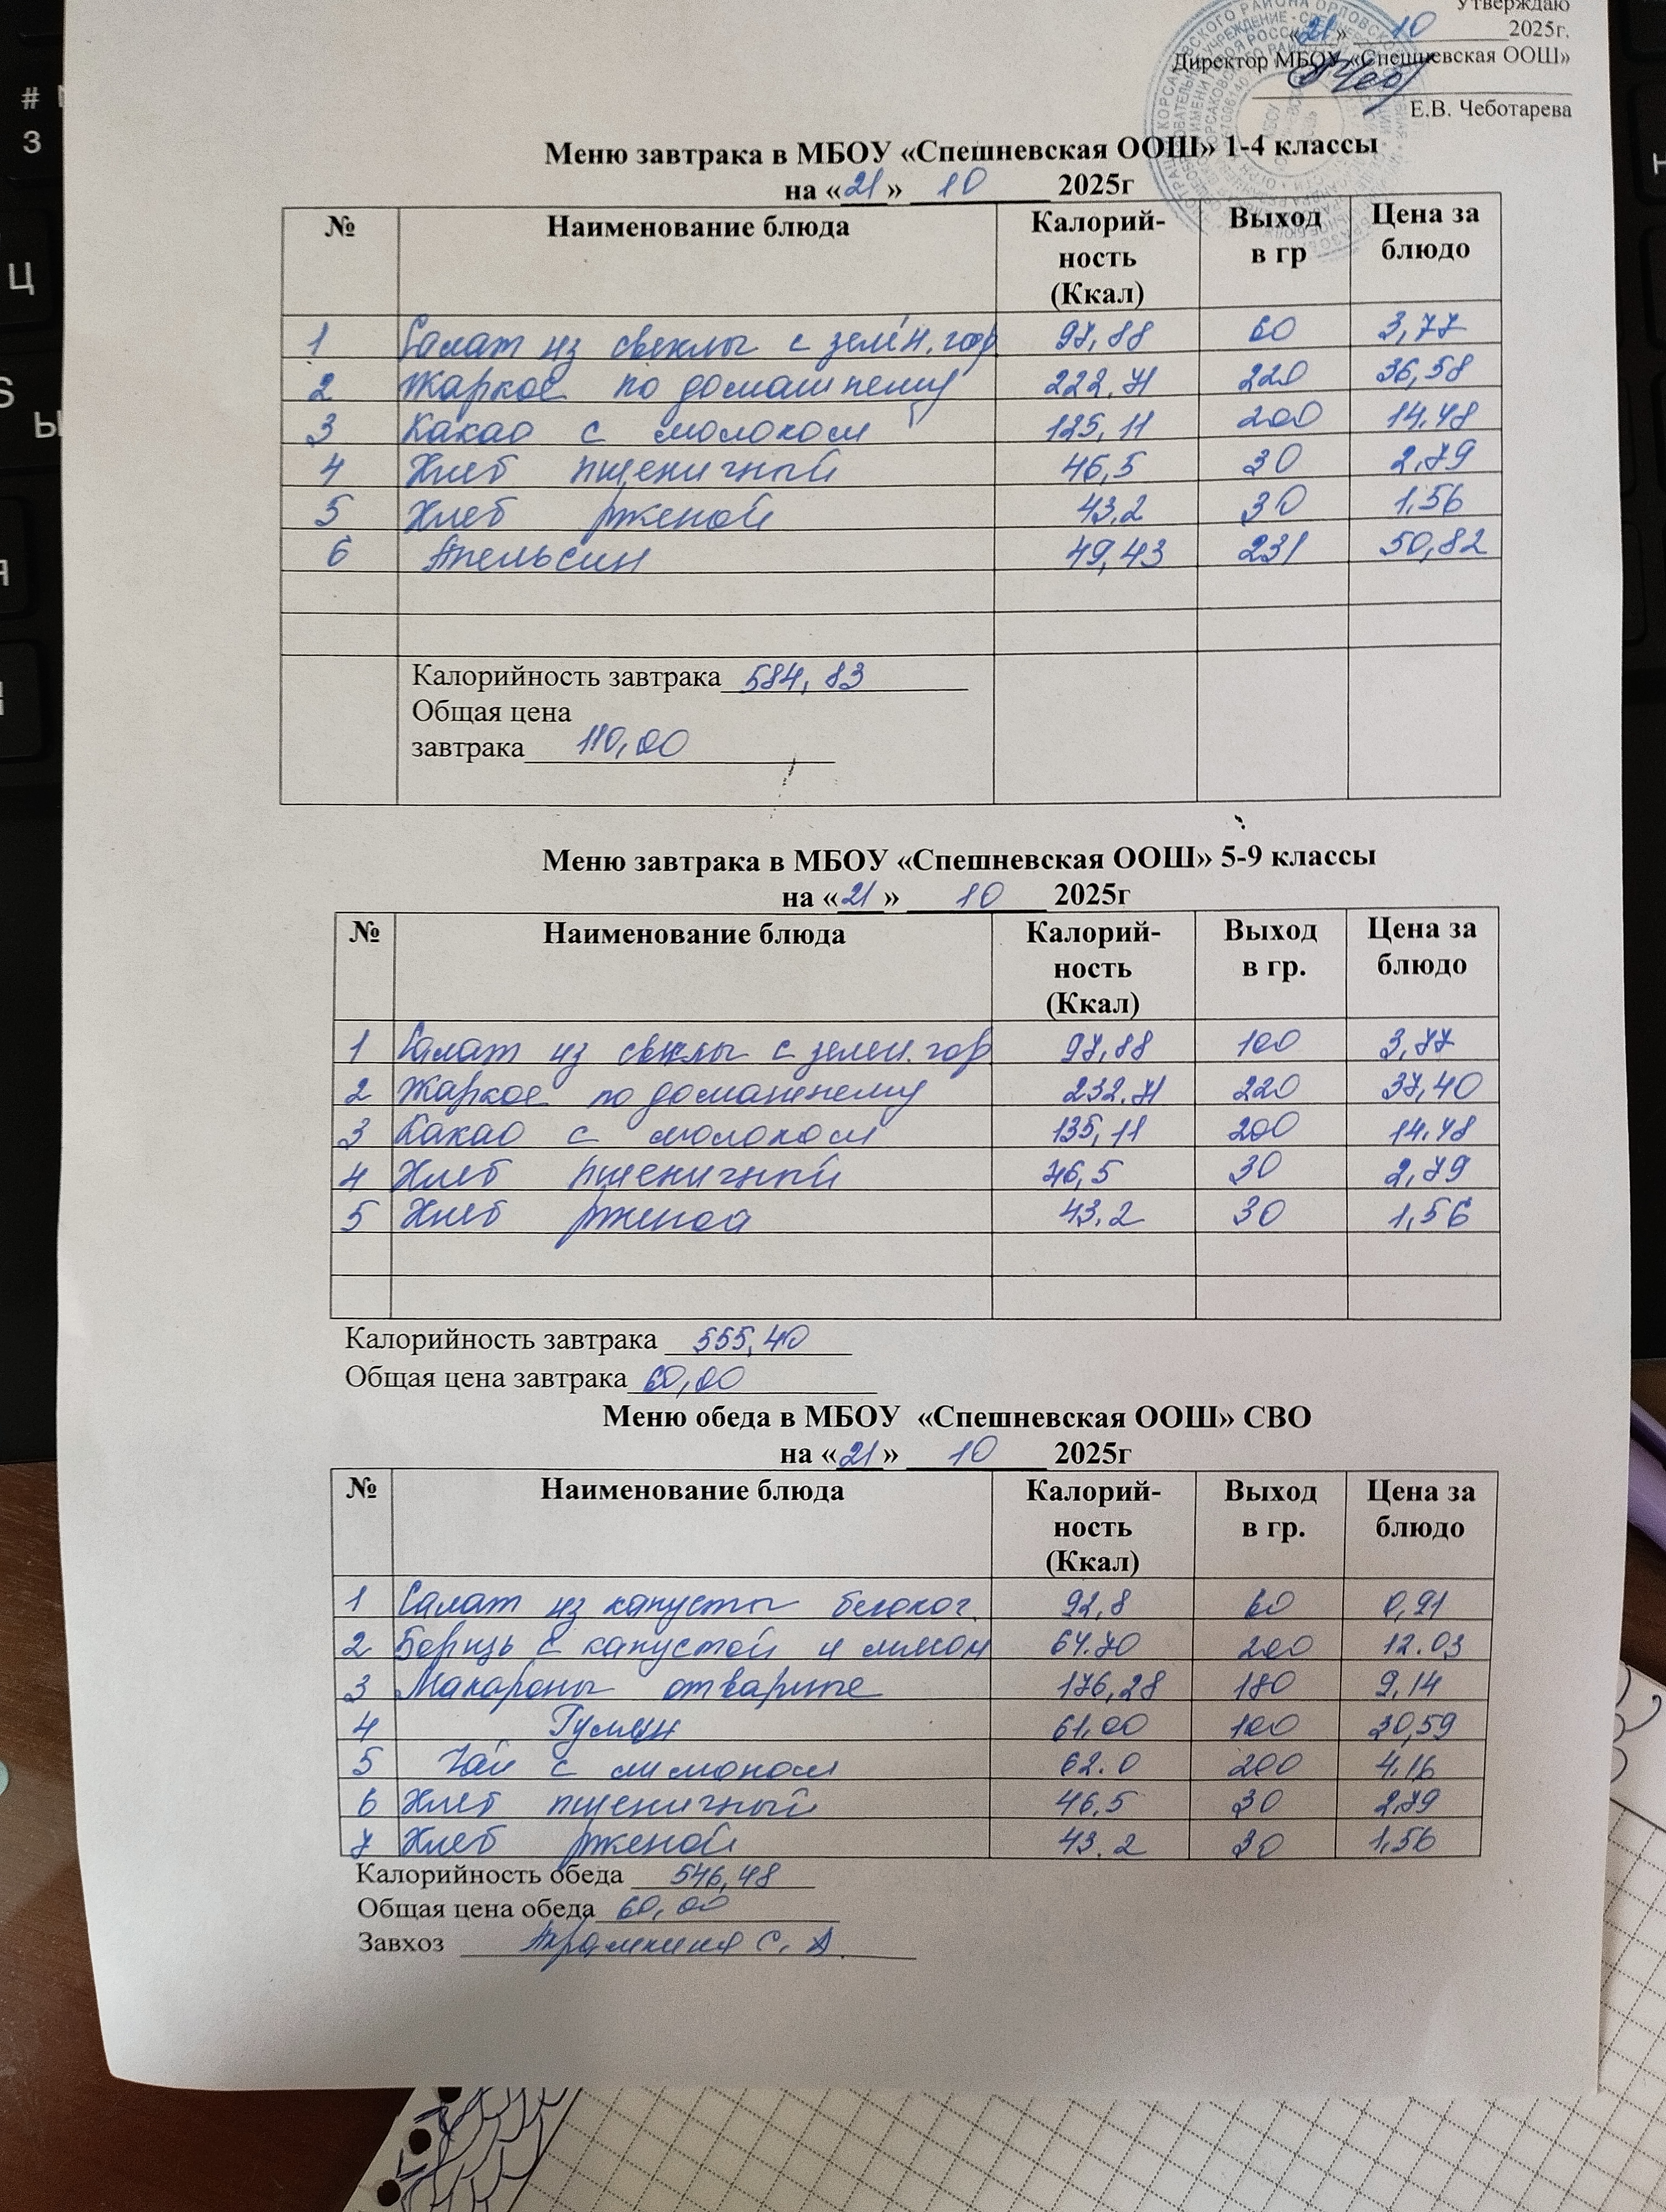 Утверждаю
«21» 10 2025г.
Директор МБОУ «Спешневская ООШ»
Е.В. Чеботарева
Меню завтрака в МБОУ «Спешневская ООШ» 1-4 классы
на «21» 10 2025г
№ Наименование блюда Калорий-ность (Ккал) Выход в гр Цена за блюдо
1 Салат из свеклы с зелён. гор 97,88 60 3,77
2 Жаркое по домашнему 222.71 220 36,58
3 Какао с молоком 125,11 200 14.48
4 Хлеб пшеничный 46,5 30 2.79
5 Хлеб рженой 43.2 30 1.56
6 Апельсин 49,43 231 50,82
Калорийность завтрака 584,83
Общая цена
завтрака 110,00
Меню завтрака в МБОУ «Спешневская ООШ» 5-9 классы
на «21» 10 2025г
№ Наименование блюда Калорий-ность (Ккал) Выход в гр. Цена за блюдо
1 Салат из свеклы с зелен. гор 97,88 100 3,77
2 Жаркое по домашнему 232.71 220 37,40
3 Какао с молоком 135,11 200 14.48
4 Хлеб пшеничный 46,5 30 2,79
5 Хлеб рженой 43.2 30 1,56
Калорийность завтрака 555,40
Общая цена завтрака 60,00
Меню обеда в МБОУ «Спешневская ООШ» СВО
на «21» 10 2025г
№ Наименование блюда Калорий-ность (Ккал) Выход в гр. Цена за блюдо
1 Салат из капусты белокоч. 92,8 60 0,91
2 Борщь с капустой и 64.70 200 12.03
3 Макароны отварные 176,28 180 9,14
4 Гуляш 61,00 100 30,59
5 Чай с лимоном 62.0 200 4.16
6 Хлеб пшеничный 46,5 30 2,79
7 Хлеб рженой 43.2 30 1,56
Калорийность обеда 546,48
Общая цена обеда 60,00
Завхоз С. А.